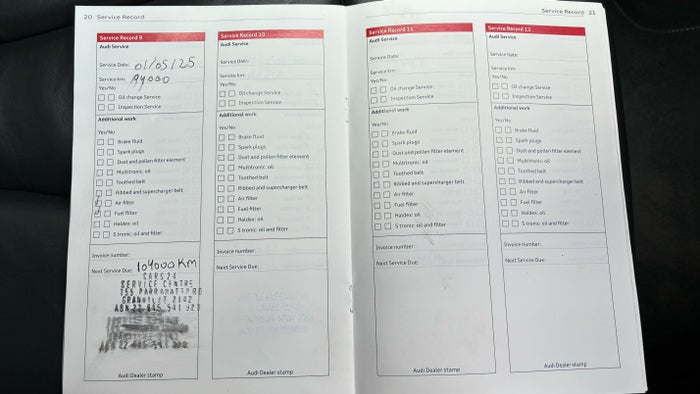 20 Service Record
Service Record 9
Audi Service
Service Date: 01/05/25
Service km:
Yes/No
Oil change Service
Inspection Service
Additional work
Yes/No
Brake fluid
Spark plugs
Dust and pollen filter element
Multitronic: oil
Toothed belt
Ribbed and supercharger belt
Air filter
Fuel filter
Haldex: oil
S tronic: oil and filter
Invoice number:
Next Service Due: 104000 KM
CARS24
SERVICE CENTRE
GRANVILLE 2142
Audi Dealer stamp
Service Record 10
Audi Service
Service Date:
Service km:
Yes/No
Oil change Service
Inspection Service
Additional work
Yes/No
Brake fluid
Spark plugs
Dust and pollen filter element
Multitronic: oil
Toothed belt
Ribbed and supercharger belt
Air filter
Fuel filter
Haldex: oil
S tronic: oil and filter
Invoice number:
Next Service Due:
Audi Dealer stamp
Service Record 21
Service Record 11
Audi Service
Service Date:
Service km:
Yes/No
Oil change Service
Inspection Service
Additional work
Yes/No
Brake fluid
Spark plugs
Dust and pollen filter element
Multitronic: oil
Toothed belt
Ribbed and supercharger belt
Air filter
Fuel filter
Haldex: oil
S tronic: oil and filter
Invoice number:
Next Service Due:
Audi Dealer stamp
Service Record 12
Audi Service
Service Date:
Service km:
Yes/No
Oil change Service
Inspection Service
Additional work
Yes/No
Brake fluid
Spark plugs
Dust and pollen filter element
Multitronic: oil
Toothed belt
Ribbed and supercharger belt
Air filter
Fuel filter
Haldex: oil
S tronic: oil and filter
Invoice number:
Next Service Due:
Audi Dealer stamp